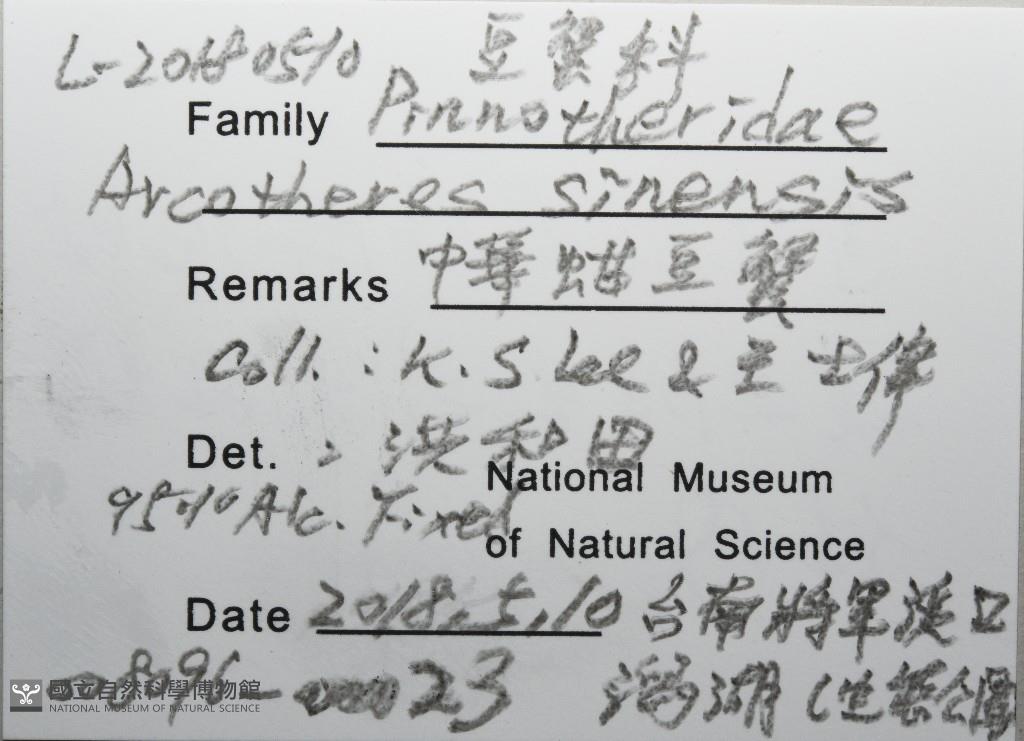 L-20180510 豆蟹科
Family Pinnotheridae
Arcotheres sinensis
Remarks 中華蚶豆蟹
Coll. : K. S Lee & 王士偉
Det. : 洪和田
National Museum
95% Alc. Fixed
of Natural Science
Date 2018.5.10 台南將軍溪口
23 潟湖
國立自然科學博物館
NATIONAL MUSEUM OF NATURAL SCIENCE